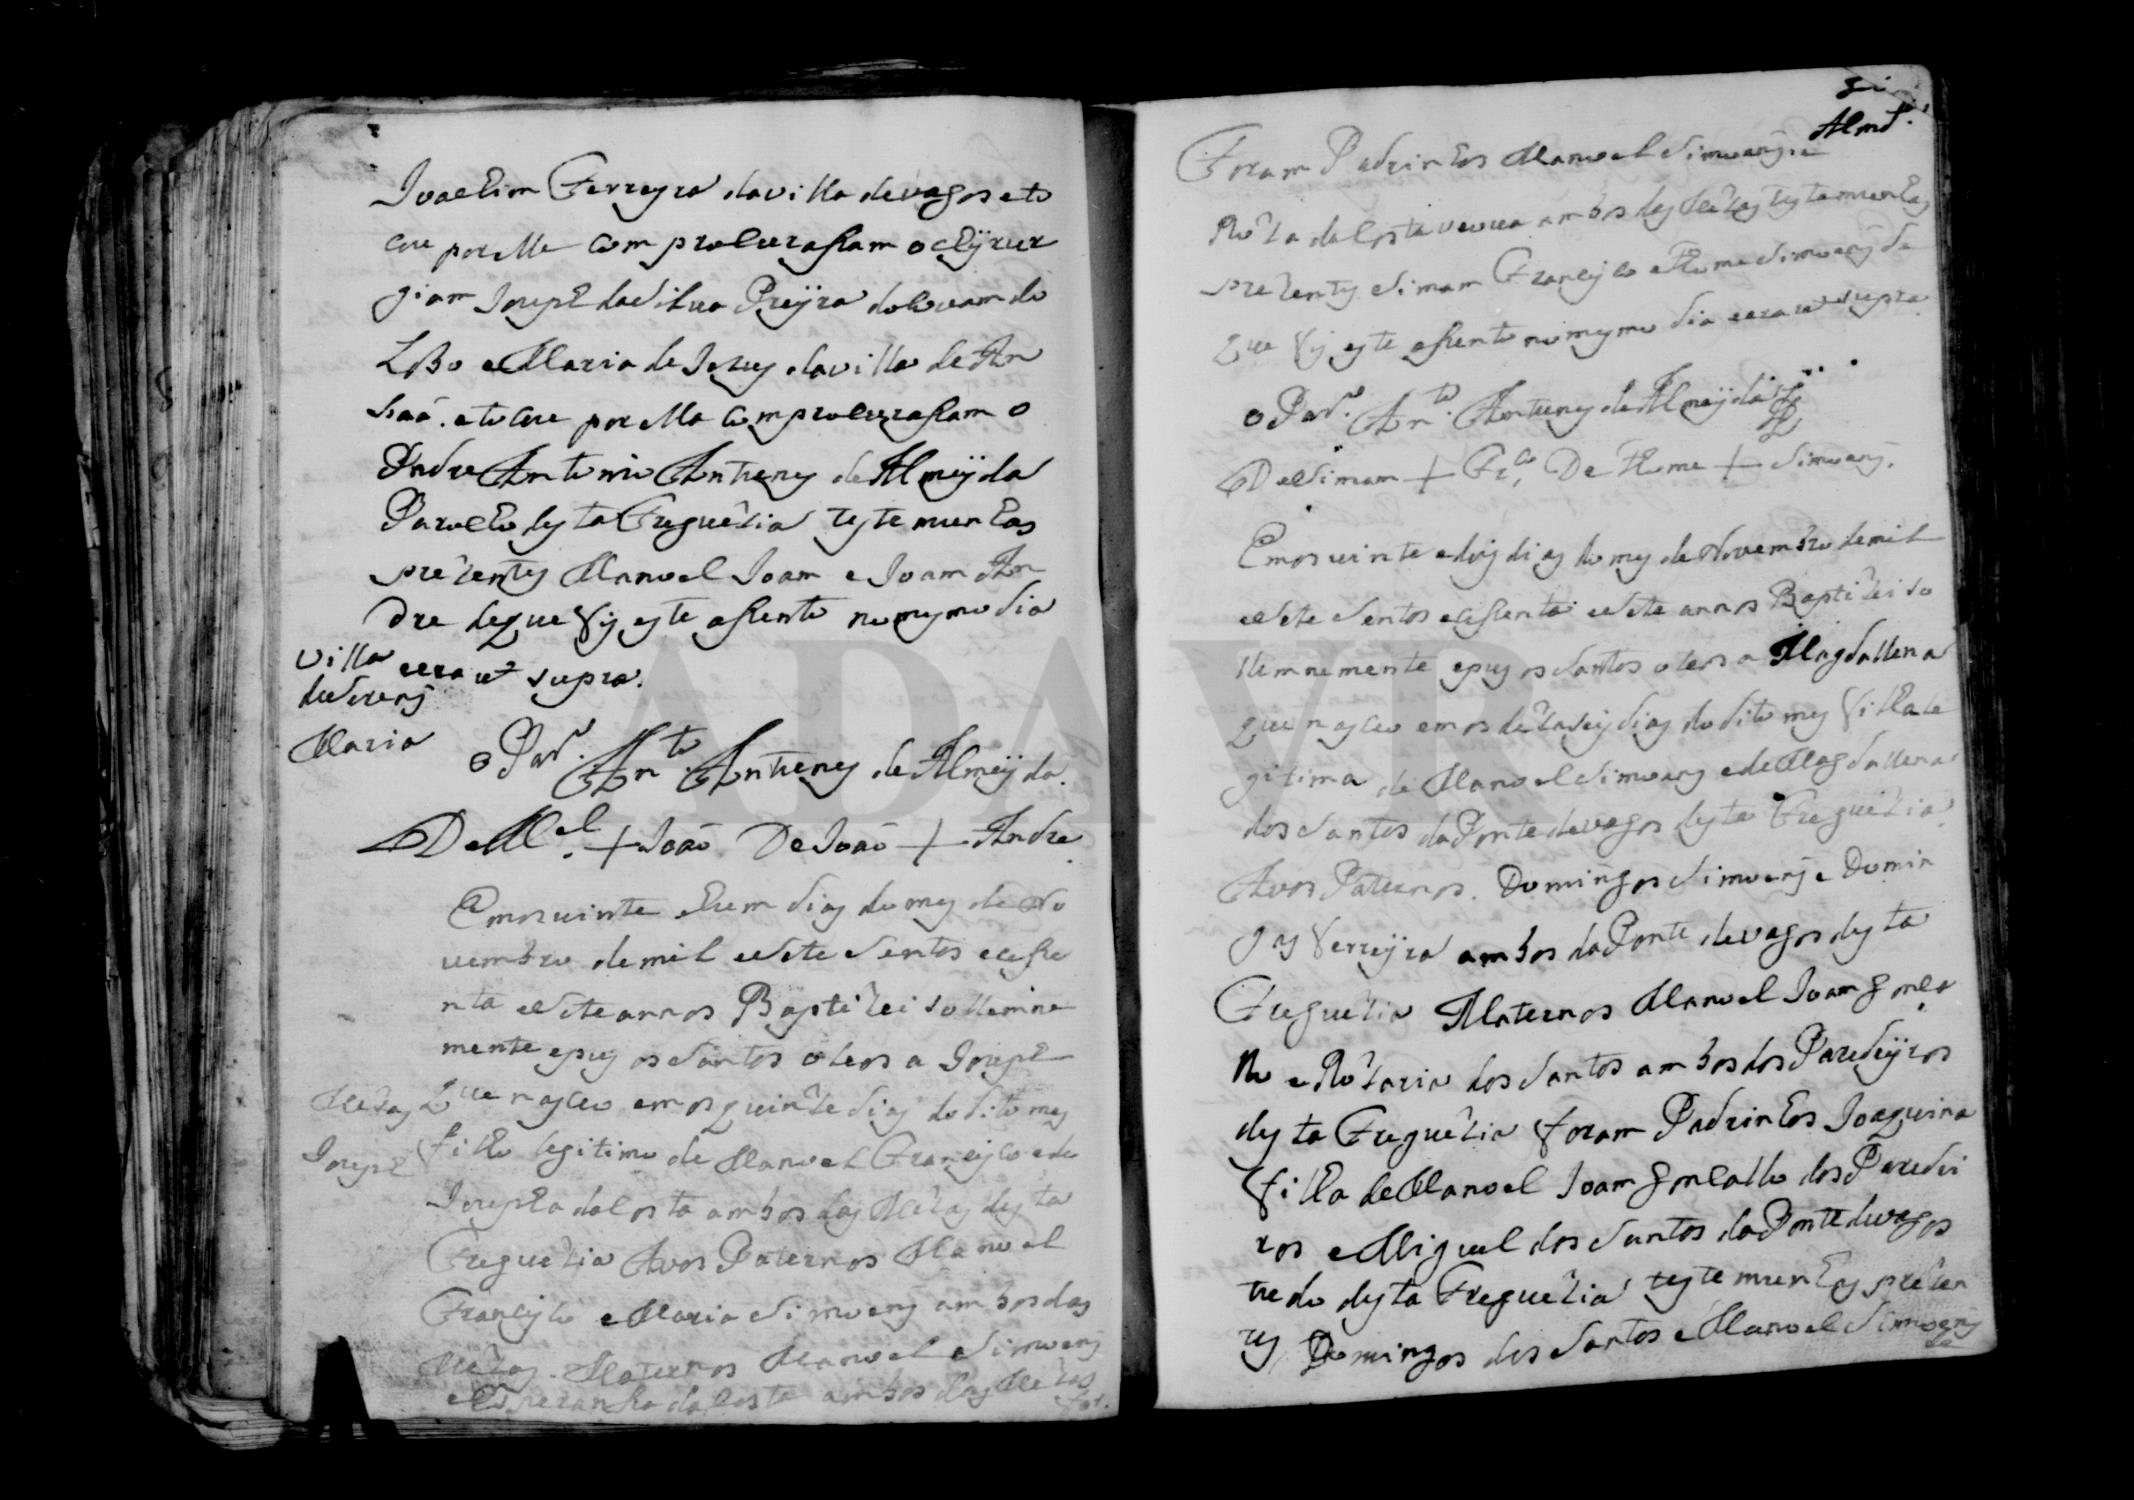 Joachim Ferreyra da villa de vagos e to
cou por elle com procurassam o Cyrur
giam Joseph da Silva Preyra do Couam do
Lobo e Maria de Jezus da villa de An
saã. e tocou por ella com procurassam o
Padre Antonio Antunes de Almeyda
Parocho desta Freguezia testemunhas
prezentes Manoel Joam e Joam An
dre de que fis este assento no mesmo dia
villa
de Soreng
era ut supra.
Maria
o Par.º Ant.to Antunes de Almeyda.
De M.el + João De João + Andre
Em os vinte e hum dias do mes de No
vembro de mil e Sete Sentos e cesse
nta e Sete annos Baptizei Sollemne
mente e pus os Santos oleos a Joseph
Mezas
que nasceo em os quinze dias do dito mes
Joseph
filho legitimo de Manoel Francisco e de
Josepha da Costa ambos das Mezas desta
Freguezia Avos Paternos Manoel
Francisco e Maria Simoens ambos das
Mezas. Maternos Manoel Simoens
e Esperansa da Costa ambos das Mezas
For.
Almd.ª
Foram Padrinhos Manoel Simoens e
Roza da Costa veuva ambos das Mezas testemunhas
prezentes Simam Francisco e Thome Simoens de
que fis este assento no mesmo dia e era ut supra.
o Par.º Ant.to Antunes de Almeyda
De Simam + Fr.co De Thome + Simoens.
Em os vinte e dois dias do mes de Novembro de mil
e Sete Sentos e cessenta e Sete annos Baptizei So
llemnemente e pus os Santos oleos a Magdallena
que nasceo em os dezaseis dias do dito mes filha le
gitima de Manoel Simoens e de Magdallena
dos Santos da Ponte de vagos desta Freguezia.
Avos Paternos. Domingos Simoens e Domin
gas Ferreyra ambos da Ponte de vagos desta
Freguezia Maternos Manoel Joam Gonsa
lho e Rozaria dos Santos ambos dos Paredeyros
desta Freguezia foram Padrinhos Joaquina
filha de Manoel Joam Gonsallo dos Paredei
ros e Miguel dos Santos da Ponte de vagos
tudo desta Freguezia testemunhas prezen
tes Domingos dos Santos e Manoel Simoens
de